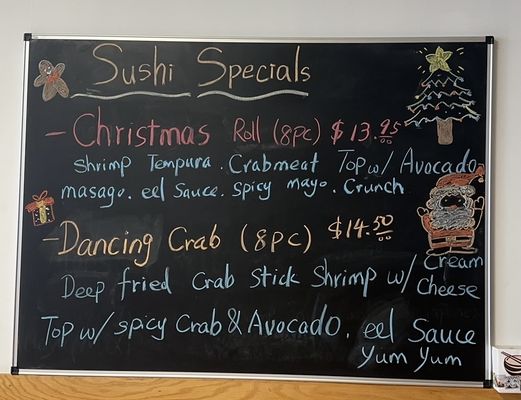 Sushi Specials
- Christmas Roll (8pc) $13.95
Shrimp Tempura . Crabmeat Top w/ Avocado
masago. eel Sauce. spicy mayo. Crunch
- Dancing Crab (8pc) $14.50
Deep fried Crab Stick Shrimp w/ Cream Cheese
Top w/ spicy Crab & Avocado. eel Sauce
Yum Yum